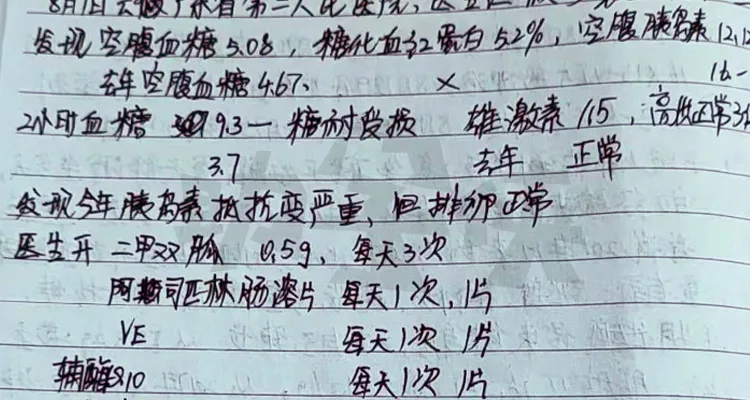 8月1日去做广东省第二人民医院,
发现空腹血糖5.08,糖化血红蛋白5.2%,空腹胰岛素12.12
去年空腹血糖4.67、 × 16.
2小时血糖 9.3一糖耐受损 雄激素 1.15,高出正常3倍
3.7 去年 正常
发现今年胰岛素抵抗变严重,但排卵正常
医生开 二甲双胍 0.5g,每天3次
阿斯司匹林肠溶片 每天1次,1片
VE 每天1次 1片
辅酶Q10 每天1次 1片